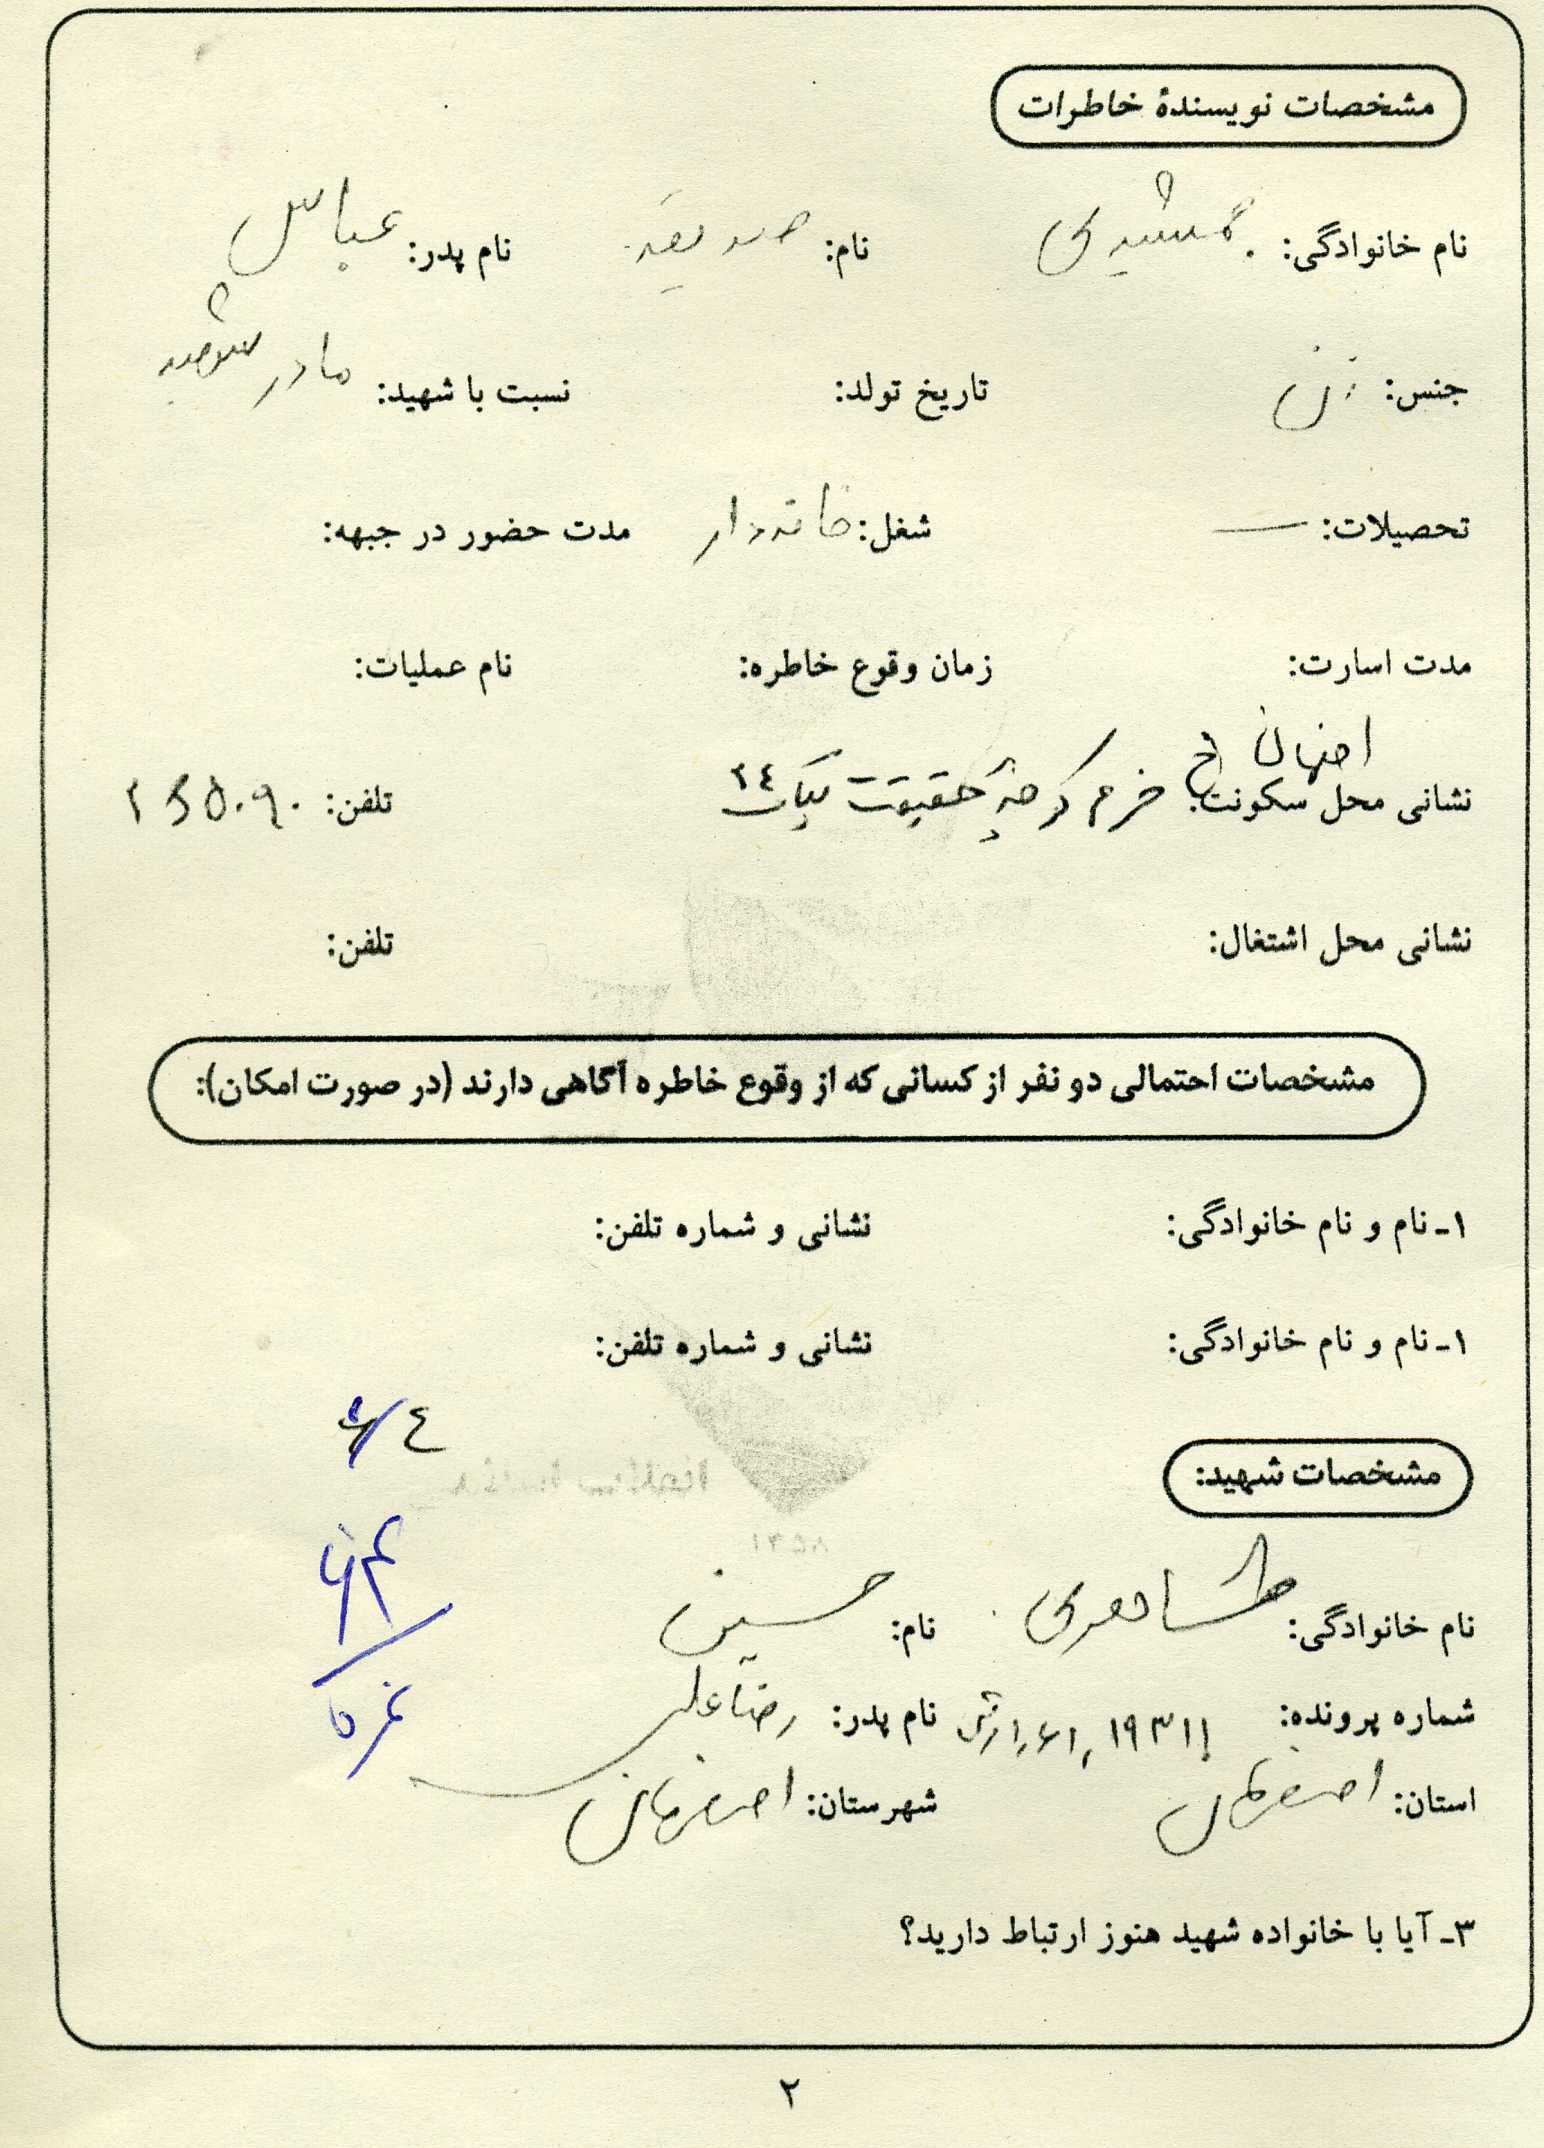 مشخصات نویسندهٔ خاطرات
نام خانوادگی: جمشیدی نام: صدیقه نام پدر: عباس
جنس: زن تاریخ تولد: نسبت با شهید: مادر شهید
تحصیلات: — شغل: خانه‌دار مدت حضور در جبهه:
مدت اسارت: زمان وقوع خاطره: نام عملیات:
اصفهان خ
نشانی محل سکونت: خرم کوچه حقیقت پلاک ۲۴ تلفن:
نشانی محل اشتغال: تلفن:
مشخصات احتمالی دو نفر از کسانی که از وقوع خاطره آگاهی دارند (در صورت امکان):
۱ـ نام و نام خانوادگی: نشانی و شماره تلفن:
۱ـ نام و نام خانوادگی: نشانی و شماره تلفن:
مشخصات شهید:
نام خانوادگی: نام: حسین
شماره پرونده: نام پدر: رضاعلی
استان: اصفهان شهرستان: اصفهان
۳ـ آیا با خانواده شهید هنوز ارتباط دارید؟
۲